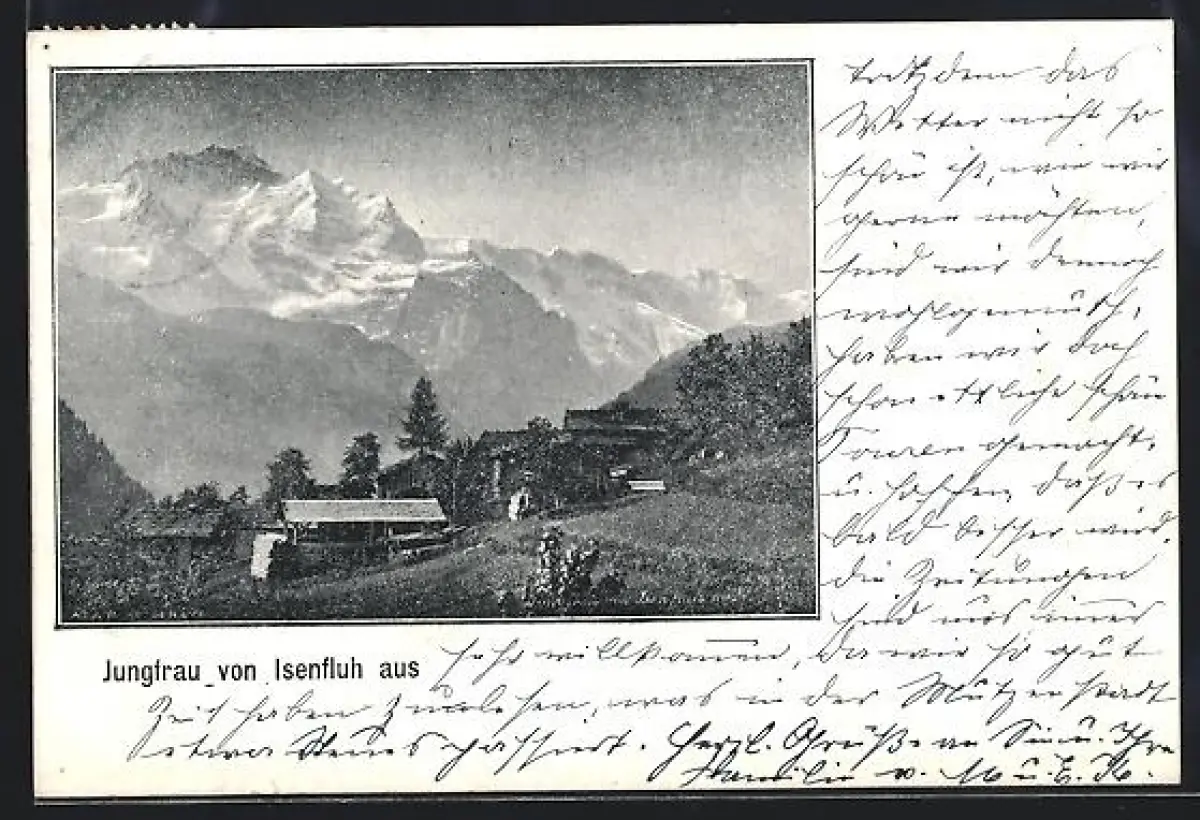 trotzdem das
Wetter nicht so
schön ist, wie wir
gerne möchten,
sind wir dennoch
wohlgemuth,
haben wir doch
schon etliche schöne
Touren gemacht,
u. hoffen, daß es
bald besser wird.
die Zeitungen
sind uns immer
Jungfrau von Isenfluh aus
sehr willkommen, da wir so gut
Zeit haben zum lesen, was in der Mutzenstadt
etwa Neues passiert. Herzl. Grüße an Sie u. Ihre
Familie v. M u. E. K.